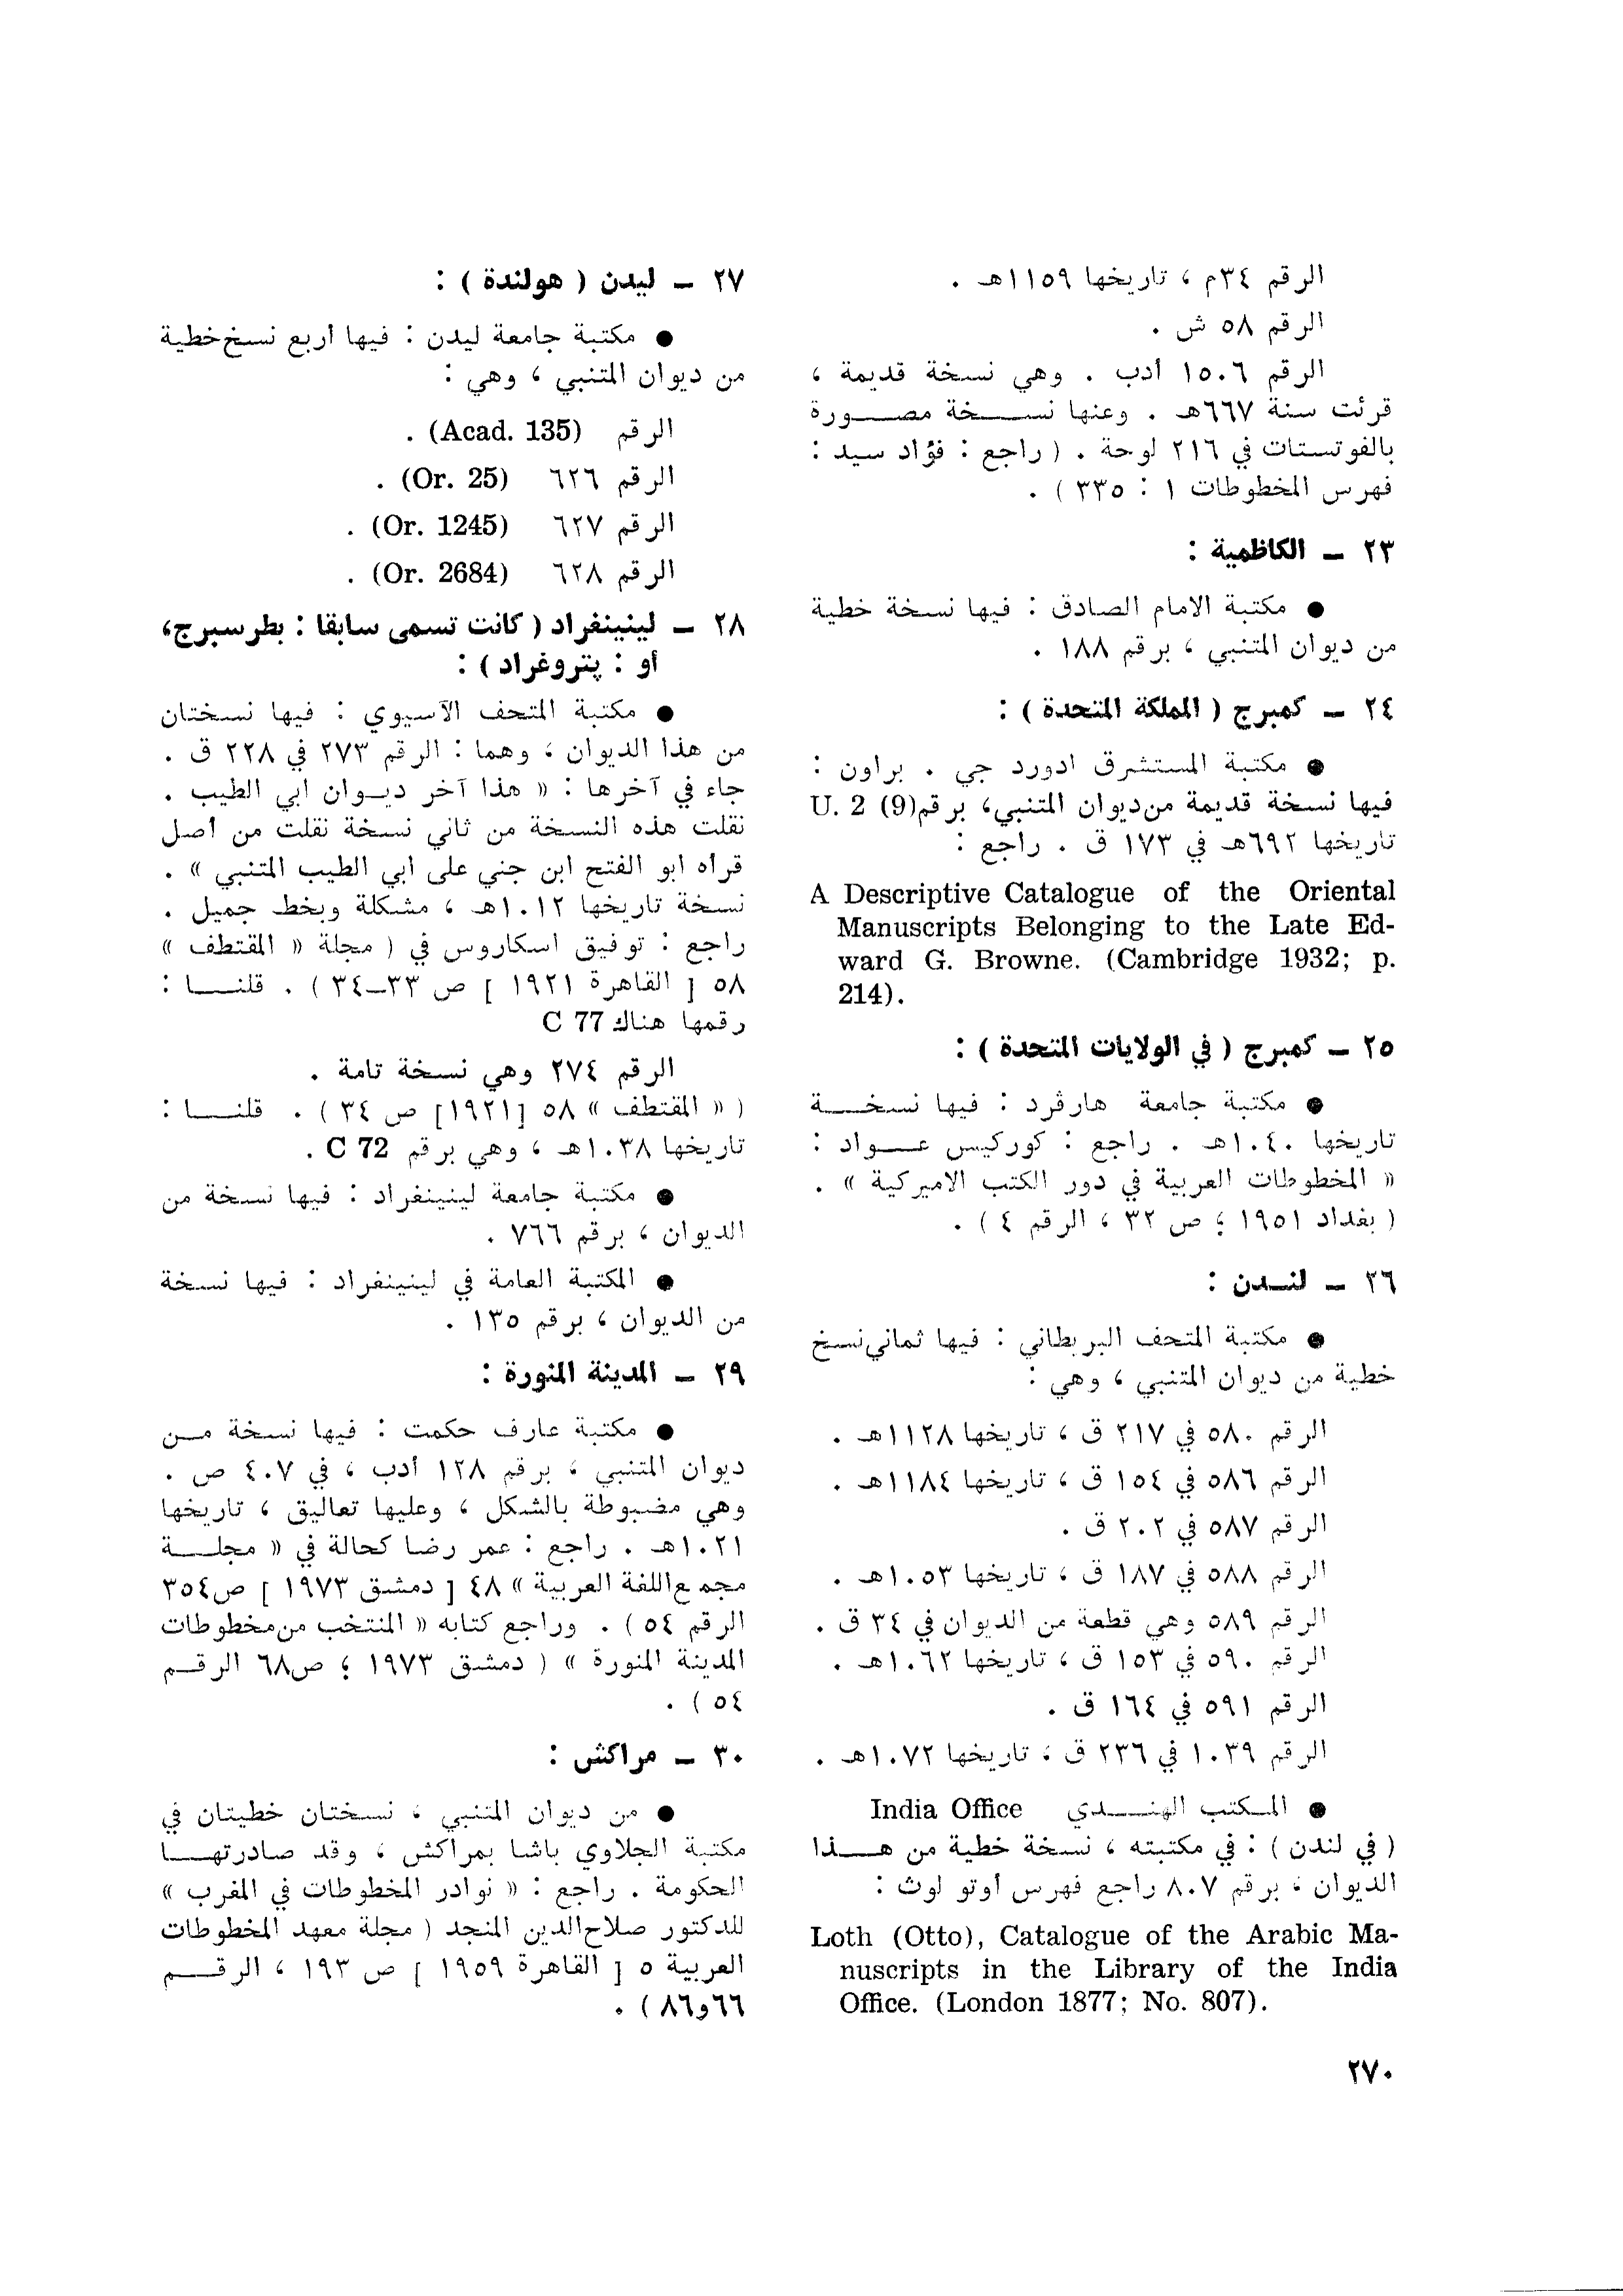 الرقم ٣٤م ، تاريخها ١١٥٩هـ .
الرقم ٥٨ ش .
الرقم ١٥٠٦ أدب . وهي نسخة قديمة ،
قرئت سنة ٦٦٧هـ . وعنها نســـخة مصــورة
بالفوتستات في ٢١٦ لوحة . ( راجع : فؤاد سيد :
فهرس المخطوطات ١ : ٣٣٥ ) .
٢٣ – الكاظمية :
● مكتبة الامام الصادق : فيها نسخة خطية
من ديوان المتنبي ، برقم ١٨٨ .
٢٤ – كمبرج ( المملكة المتحدة ) :
● مكتبة المستشرق ادورد جي . براون :
فيها نسخة قديمة من ديوان المتنبي، برقم U. 2 (9)
تاريخها ٦٩٢هـ في ١٧٣ ق . راجع :
A Descriptive Catalogue of the Oriental
Manuscripts Belonging to the Late Ed-
ward G. Browne. (Cambridge 1932; p.
214).
٢٥ – كمبرج ( في الولايات المتحدة ) :
● مكتبة جامعة هارڤرد : فيها نسخـــة
تاريخها ١٠٤٠هـ . راجع : كوركيس عـــواد :
« المخطوطات العربية في دور الكتب الاميركية » .
( بغداد ١٩٥١ ؛ ص ٣٢ ، الرقم ٤ ) .
٢٦ – لنــدن :
● مكتبة المتحف البريطاني : فيها ثماني نسخ
خطية من ديوان المتنبي ، وهي :
الرقم ٥٨٠ في ٢١٧ ق ، تاريخها ١١٢٨هـ .
الرقم ٥٨٦ في ١٥٤ ق ، تاريخها ١١٨٤هـ .
الرقم ٥٨٧ في ٢٠٢ ق .
الرقم ٥٨٨ في ١٨٧ ق ، تاريخها ١٠٥٣هـ .
الرقم ٥٨٩ وهي قطعة من الديوان في ٣٤ ق .
الرقم ٥٩٠ في ١٥٣ ق ، تاريخها ١٠٦٢هـ .
الرقم ٥٩١ في ١٦٤ ق .
الرقم ١٠٣٩ في ٢٣٦ ق ، تاريخها ١٠٧٢هـ .
● المــكتب الهنــــدي India Office
( في لندن ) : في مكتبته ، نسخة خطية من هـــذا
الديوان ، برقم ٨٠٧ راجع فهرس أوتو لوث :
Loth (Otto), Catalogue of the Arabic Ma-
nuscripts in the Library of the India
Office. (London 1877; No. 807).
٢٧ – ليدن ( هولندة ) :
● مكتبة جامعة ليدن : فيها أربع نسخ خطية
من ديوان المتنبي ، وهي :
الرقم (Acad. 135) .
الرقم ٦٢٦ (Or. 25) .
الرقم ٦٢٧ (Or. 1245) .
الرقم ٦٢٨ (Or. 2684) .
٢٨ – لينينغراد ( كانت تسمى سابقا : بطرسبرج،
أو : پتروغراد ) :
● مكتبة المتحف الآسيوي : فيها نسختان
من هذا الديوان ، وهما : الرقم ٢٧٣ في ٢٢٨ ق .
جاء في آخرها : « هذا آخر ديــوان ابي الطيب .
نقلت هذه النسخة من ثاني نسخة نقلت من أصل
قرأه ابو الفتح ابن جني على ابي الطيب المتنبي » .
نسخة تاريخها ١٠١٢هـ ، مشكلة وبخط جميل .
راجع : توفيق اسكاروس في ( مجلة « المقتطف »
٥٨ [ القاهرة ١٩٢١ ] ص ٣٣–٣٤ ) . قلنــــا :
رقمها هناك C 77
الرقم ٢٧٤ وهي نسخة تامة .
( « المقتطف » ٥٨ [١٩٢١] ص ٣٤ ) . قلنــــا :
تاريخها ١٠٣٨هـ ، وهي برقم C 72 .
● مكتبة جامعة لينينغراد : فيها نسخة من
الديوان ، برقم ٧٦٦ .
● المكتبة العامة في لينينغراد : فيها نسخة
من الديوان ، برقم ١٣٥ .
٢٩ – المدينة المنورة :
● مكتبة عارف حكمت : فيها نسخة مــن
ديوان المتنبي ، برقم ١٢٨ أدب ، في ٤٠٧ ص .
وهي مضبوطة بالشكل ، وعليها تعاليق ، تاريخها
١٠٢١هـ . راجع : عمر رضا كحالة في « مجلـــة
مجمع اللغة العربية » ٤٨ [ دمشق ١٩٧٣ ] ص٣٥٤
الرقم ٥٤ ) . وراجع كتابه « المنتخب من مخطوطات
المدينة المنورة » ( دمشق ١٩٧٣ ؛ ص٦٨ الرقــم
٥٤ ) .
٣٠ – مراكش :
● من ديوان المتنبي ، نسختان خطيتان في
مكتبة الجلاوي باشا بمراكش ، وقد صادرتهـــا
الحكومة . راجع : « نوادر المخطوطات في المغرب »
للدكتور صلاح الدين المنجد ( مجلة معهد المخطوطات
العربية ٥ [ القاهرة ١٩٥٩ ] ص ١٩٣ ، الرقــم
٦٦و٨٦ ) .
٢٧٠